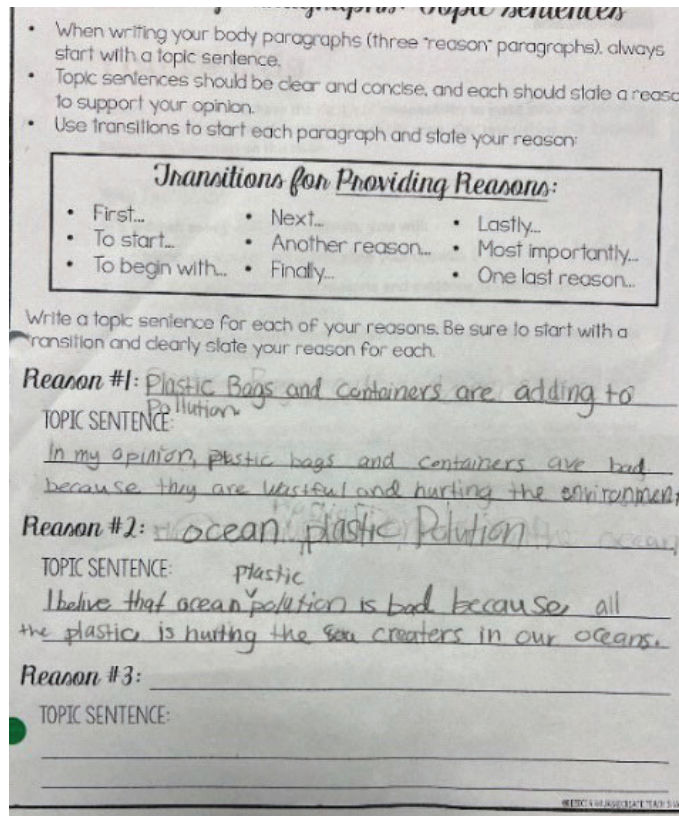 Topic Sentences
• When writing your body paragraphs (three "reason" paragraphs), always
start with a topic sentence.
• Topic sentences should be clear and concise, and each should state a reaso
to support your opinion.
• Use transitions to start each paragraph and state your reason:
Transitions for Providing Reasons:
• First... • Next... • Lastly...
• To start... • Another reason... • Most importantly...
• To begin with... • Finally... • One last reason...
Write a topic sentence for each of your reasons. Be sure to start with a
transition and clearly state your reason for each.
Reason #1: Plastic Bags and containers are adding to
Pollution
TOPIC SENTENCE:
In my opinion, plastic bags and containers are bad
because they are wastful and hurting the environmen
Reason #2: ocean plastic Polution
TOPIC SENTENCE:
plastic
I belive that ocean polution is bad because all
the plastic is hurting the sea creaters in our oceans.
Reason #3:
TOPIC SENTENCE: